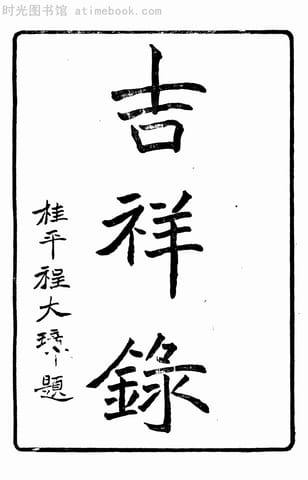 时光图书馆 atimebook.com
吉祥錄
桂平程大璋題